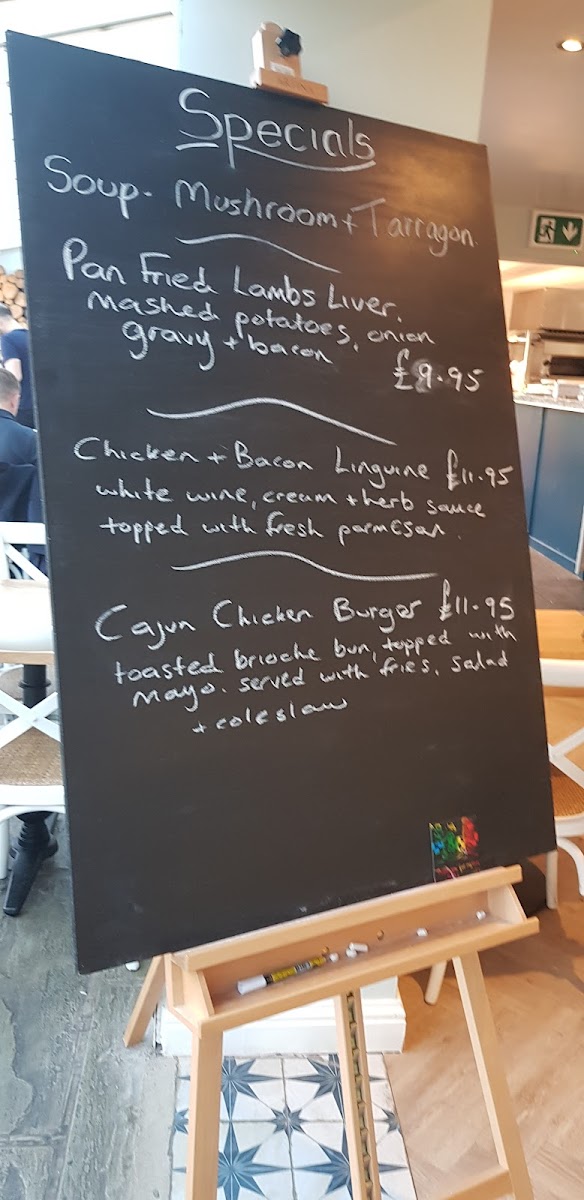 Specials
Soup - Mushroom + Tarragon.
Pan Fried Lambs Liver.
mashed potatoes, onion
gravy + bacon £9.95
Chicken + Bacon Linguine £11.95
white wine, cream + herb sauce
topped with fresh parmesan.
Cajun Chicken Burger £11.95
toasted brioche bun, topped with
mayo. served with fries, salad
+ coleslaw